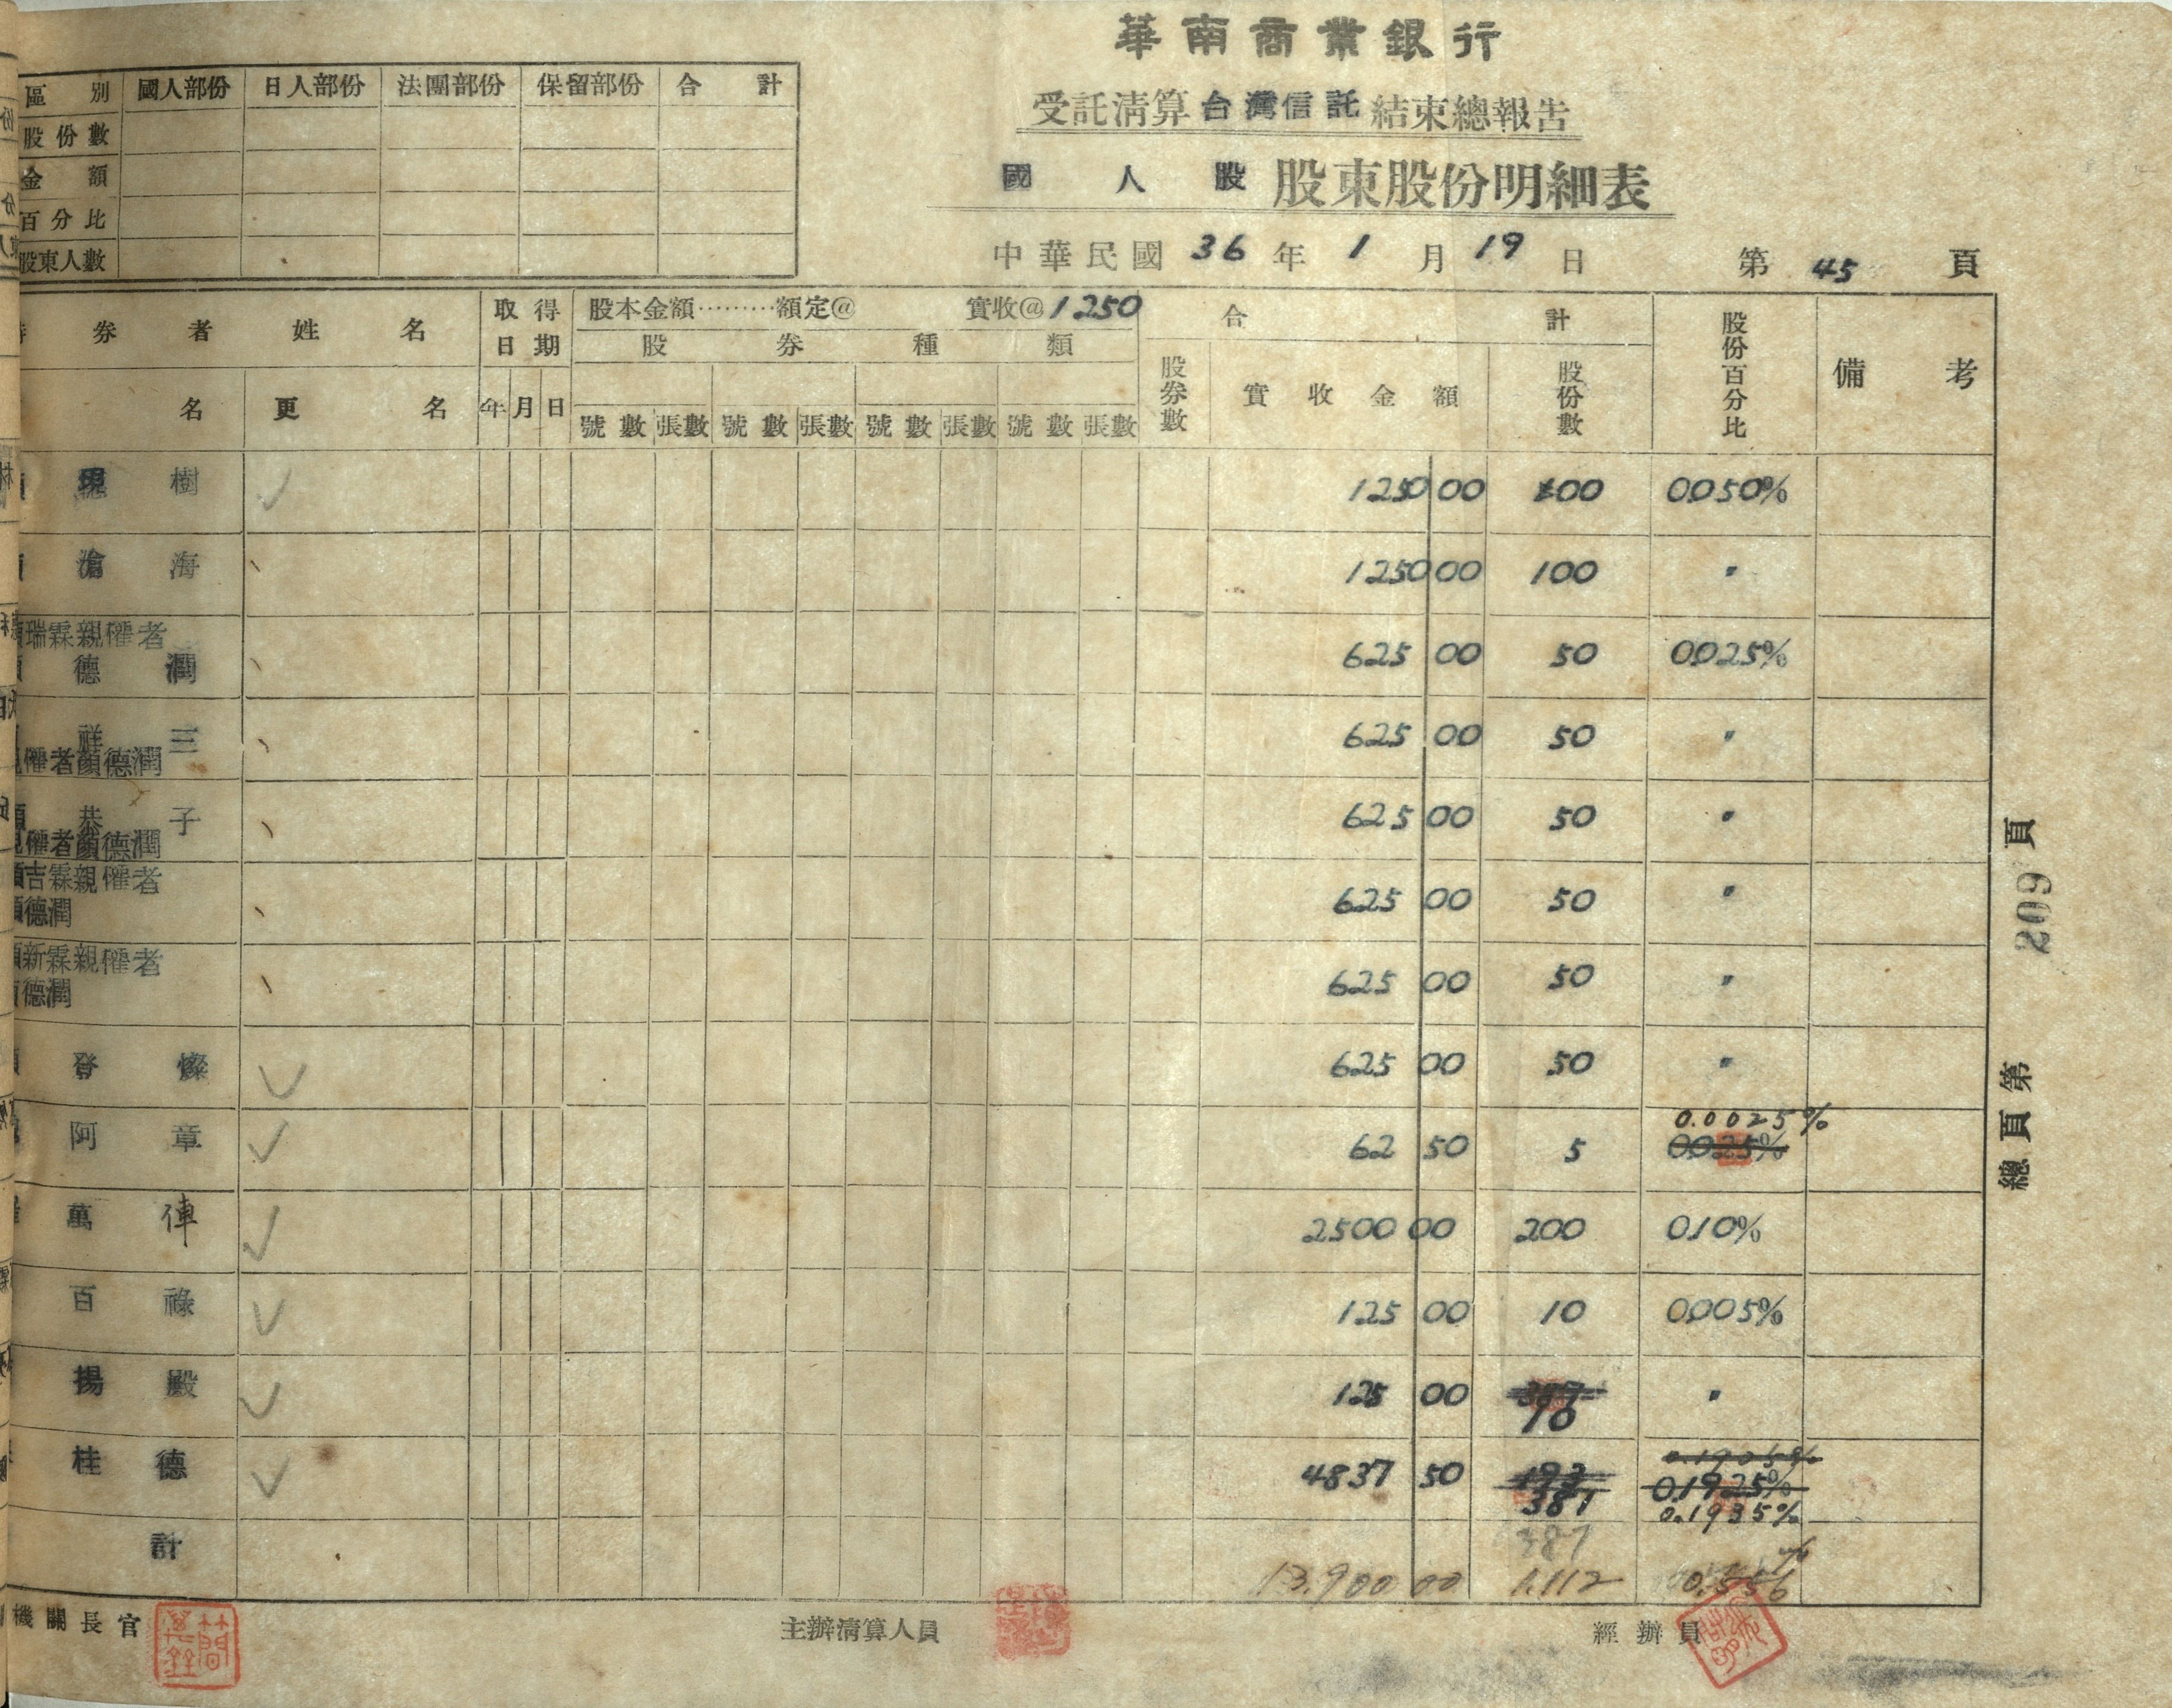 華南商業銀行
受託清算台灣信託結束總報告
國人股股東股份明細表
中華民國36年1月19日 第45頁
區別 國人部份 日人部份 法團部份 保留部份 合計
股份數
金額
百分比
股東人數
券者姓名 取得日期 股本金額………額定@ 實收@1250 合計 股份百分比 備考
股券種類
名 更名 年 月 日 號數 張數 號數 張數 號數 張數 號數 張數 股券數 實收金額 股份數
樹 1250 00 100 0050%
滄海 1250 00 100 〃
瑞霖親權者
德潤 625 00 50 0025%
祥三 625 00 50 〃
權者顏德潤
恭子 625 00 50 〃
權者顏德潤
吉霖親權者 625 00 50 〃
德潤
新霖親權者 625 00 50 〃
德潤
登燦 625 00 50 〃
0.0025%
阿章 62 50 5 0025%
萬俥 2500 00 200 010%
百祿 125 00 10 0005%
揚殿 125 00 10 〃
0.1905%
桂德 4837 50 193 01925%
387 0.1935%
387
計 13,900 00 1.112 0.556
機關長官 主辦清算人員 經辦員
總頁第 209 頁